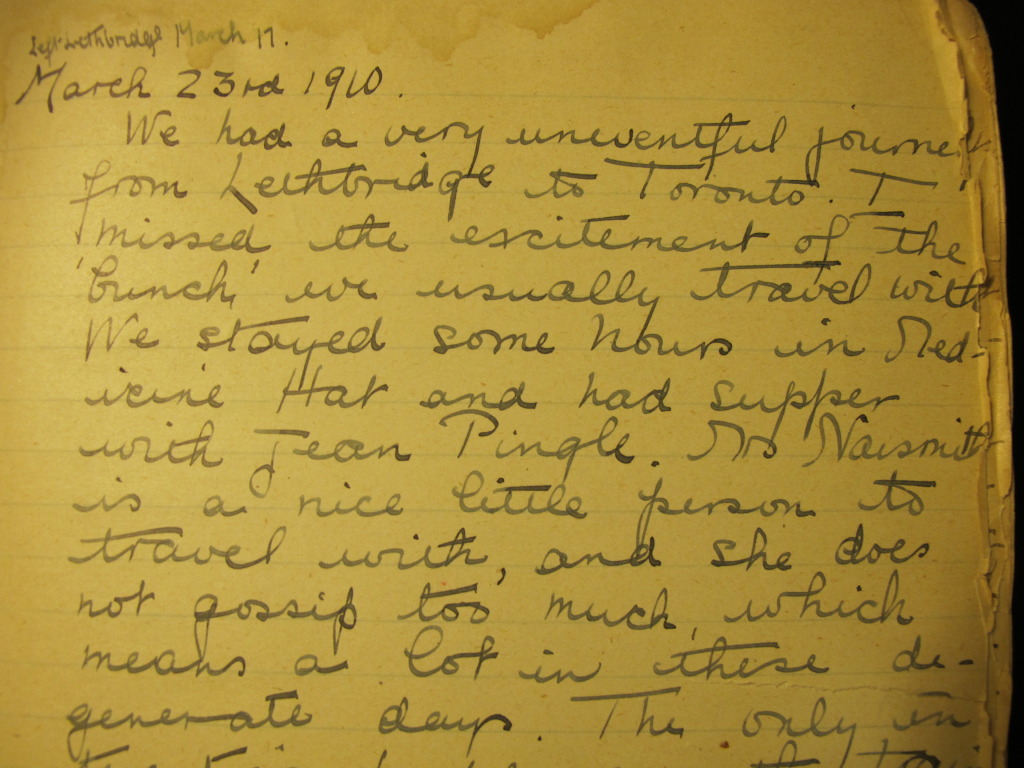 Left Lethbridge March 17.
March 23rd 1910.
We had a very uneventful journey
from Lethbridge to Toronto. I
missed the excitement of the
'bunch' we usually travel with
We stayed some hours in Med-
icine Hat and had supper
with Jean Pingle. Mrs Naismith
is a nice little person to
travel with, and she does
not gossip too much, which
means a lot in these de-
generate days. The only in